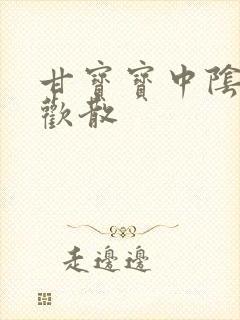 甘寶寶中陰
歡散
走邊邊